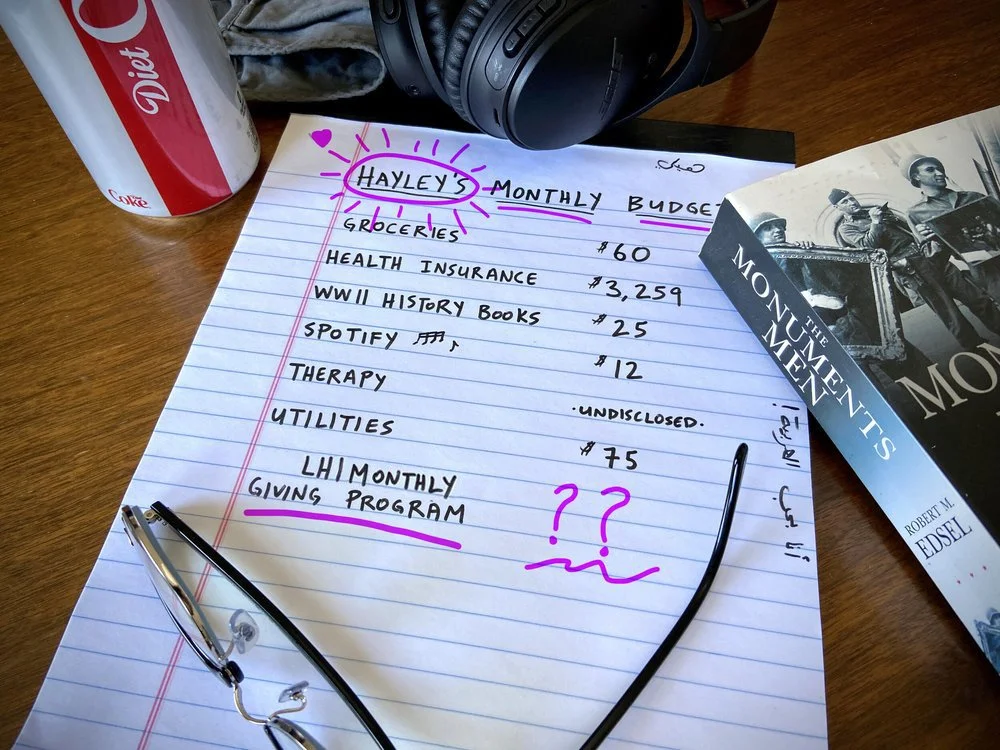 Diet Coke
Coke
BOSE
HAYLEY'S MONTHLY BUDGE
GROCERIES $60
HEALTH INSURANCE $3,259
WWII HISTORY BOOKS $25
SPOTIFY $12
THERAPY ·UNDISCLOSED.
UTILITIES $75
LHI MONTHLY
GIVING PROGRAM ??
THE
MONUMENTS
MEN
ROBERT M.
EDSEL
MON